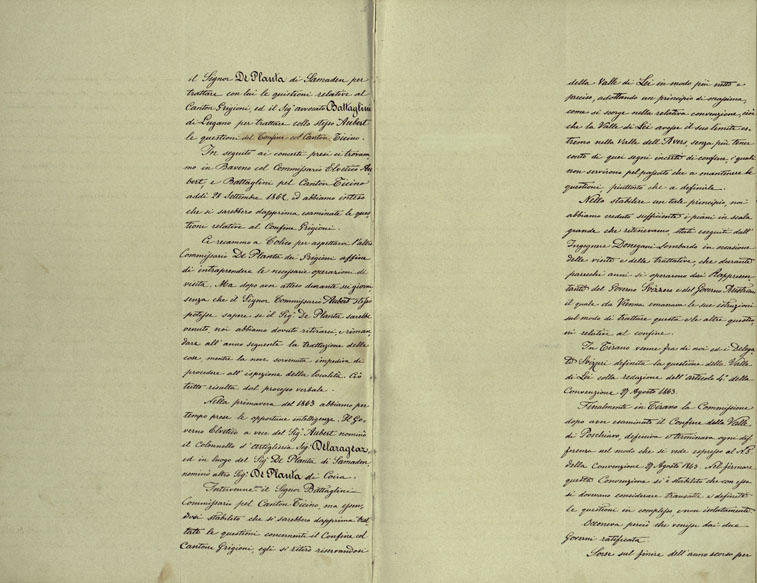 il Signor De Planta di Samaden per
trattare con lui le quistioni relative al
Canton Grigioni, ed il Sig. avvocato Battaglini
di Lugano per trattare collo stesso Aubert
le questioni del Confine col Canton Ticino.
In seguito ai concerti presi ci trovam
mo in Baveno col Commissario Elvetico Au
bert e Battaglini pel Canton Ticino
addì 28 Settembre 1862, ed abbiamo inteso
che si sarebbero dapprima esaminate le ques
tioni relative al Confine Grigioni.
Ci recammo a Colico per aspettarvi l'altro
Commissario De Planta dei Grigioni affine
di intraprendere le necessarie operazioni di
visita. Ma dopo aver atteso durante sei giorni
senza che il Signor Commissario Aubert stesso
potesse sapere se il Sig. De Planta sarebbe
venuto noi abbiamo dovuto ritirarci, e riman
dare all'anno seguente la trattazione delle
cose, mentre la neve sorvenuta impediva di
procedere all'ispezione delle località. Ciò
tutto risulta dal processo verbale.
Nella primavera del 1863 abbiamo per
tempo prese le opportune intelligenze. Il Go
verno Elvetico a vece del Sig. Aubert nominò
il Colonnello d'Artiglieria Sig. Delarageaz,
ed in luogo del Sig. De Planta di Samaden,
nominò altro Sig. De Planta di Coira.
Intervenne il Signor Battaglini
Commissario pel Canton Ticino, ma essen
dosi stabilito che si sarebbero dapprima trat
tate le questioni concernenti il Confine col
Cantone Grigioni, egli si ritirò riservandosi
della Valle di Lei in modo più netto e
preciso, adottando un principio di massima,
come si scorge nella relativa convenzione, cioè
che la Valle di Lei avesse il suo limite es
tremo nella Valle dell'Avers, senza più tener
conto di quei segni incerti di confine, i quali
non servirono pel passato che a mantenere le
questioni piuttosto che a definirle.
Nello stabilire un tale principio, noi
abbiamo creduto sufficienti i piani in scala
grande che ritenevamo, stati eseguiti dall'
Ingegnere Donegani Lombardo in occasione
delle visite e delle trattative, che durante
parecchi anni si operarono dai Rappresen
tanti del Governo Svizzero e del Governo Austriaco
il quale da Vienna emanava le sue istruzioni
sul modo di trattare questa e le altre questio
ni relative al confine.
In Tirano venne fra di noi ed i Delega
ti Svizzeri definita la questione della Valle
di Lei colla redazione dell'articolo 4° della
Convenzione 27 Agosto 1863.
Finalmente in Tirano la Commissione
dopo aver esaminato il Confine della Valle
di Poschiavo, definiva e terminava ogni dif
ferenza nel modo che si vede espresso al N°
della Convenzione 27 Agosto 1863. Nel firmare
questa Convenzione si è stabilito che con essa
si dovevano considerare transatte e definite
le questioni in complesso e non isolatamente
Occorreva perciò che venisse dai due
Governi ratificata.
Sorse sul finire dell'anno scorso per